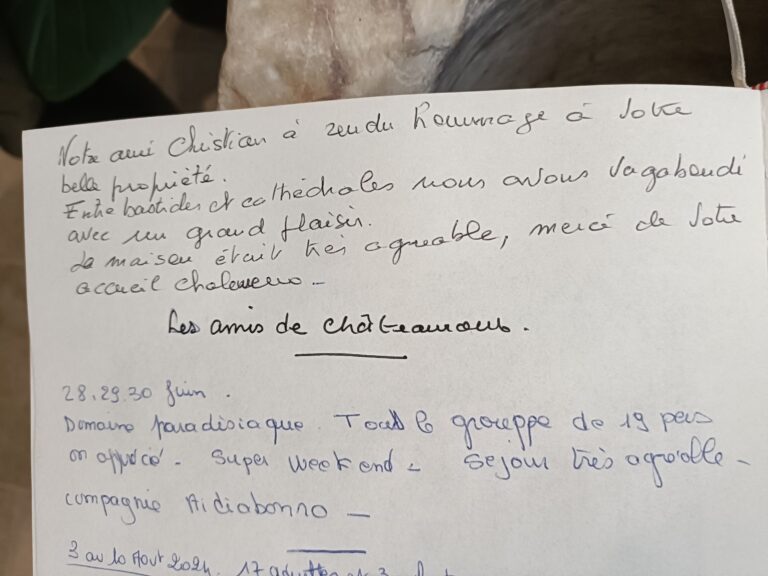 Notre ami Christian à rendu hommage à votre
belle propriété.
Entre bastides et cathédrales nous avons vagabondé
avec un grand plaisir.
La maison était très agréable, merci de votre
accueil chaleureux -
Les amis de
28.29.30 Juin.
Domaine paradisiaque. Tout le grouppe de 19 pers
on apprécié. Super weekend - Sejour très agréable -
compagnie
3 au 10 Aout 2024. 17